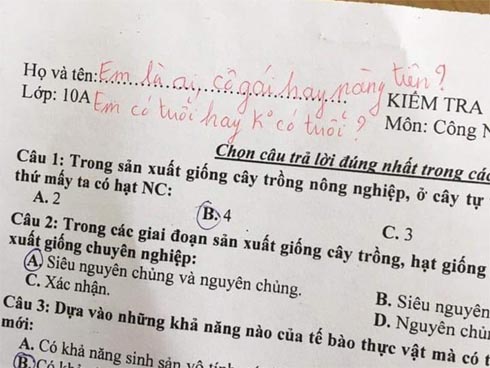 Họ và tên: Em là ai, cô gái hay nàng tiên?
KIỂM TRA
Lớp: 10A Em có tuổi hay k° có tuổi?
Môn: Công N
Chọn câu trả lời đúng nhất trong các
Câu 1: Trong sản xuất giống cây trồng nông nghiệp, ở cây tự
thứ mấy ta có hạt NC:
A. 2 B. 4 C. 3
Câu 2: Trong các giai đoạn sản xuất giống cây trồng, hạt giống
xuất giống chuyên nghiệp:
A. Siêu nguyên chủng và nguyên chủng. B. Siêu nguyên
C. Xác nhận. D. Nguyên chủn
Câu 3: Dựa vào những khả năng nào của tế bào thực vật mà có t
mới:
A. Có khả năng sinh sản vô tính
B. Có khả